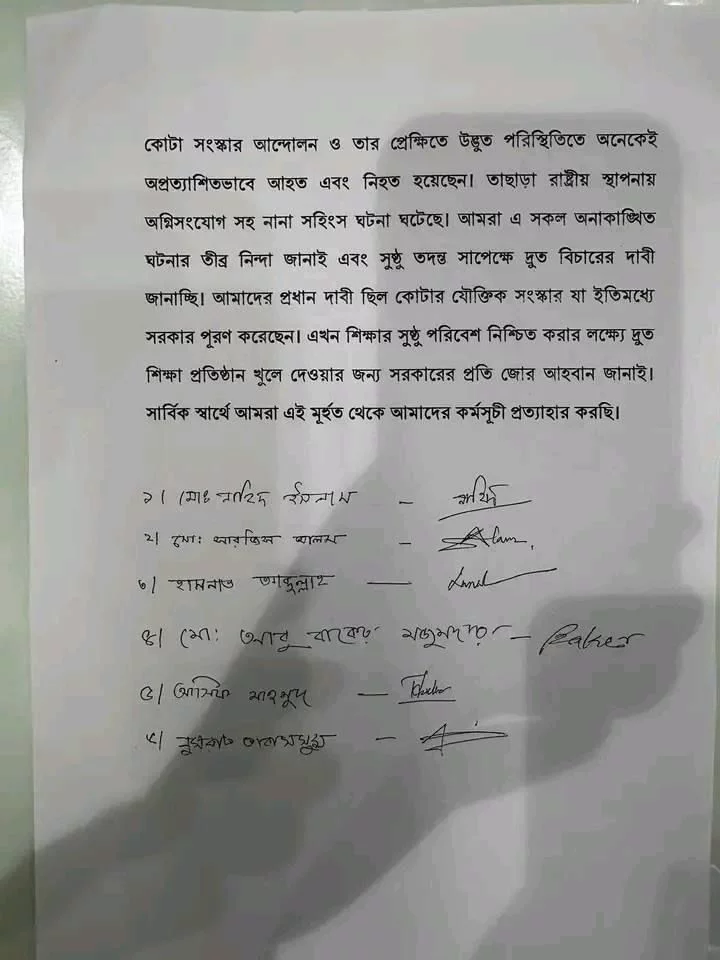 কোটা সংস্কার আন্দোলন ও তার প্রেক্ষিতে উদ্ভূত পরিস্থিতিতে অনেকেই
অপ্রত্যাশিতভাবে আহত এবং নিহত হয়েছেন। তাছাড়া রাষ্ট্রীয় স্থাপনায়
অগ্নিসংযোগ সহ নানা সহিংস ঘটনা ঘটেছে। আমরা এ সকল অনাকাঙ্খিত
ঘটনার তীব্র নিন্দা জানাই এবং সুষ্ঠু তদন্ত সাপেক্ষে দ্রুত বিচারের দাবী
জানাচ্ছি। আমাদের প্রধান দাবী ছিল কোটার যৌক্তিক সংস্কার যা ইতিমধ্যে
সরকার পূরণ করেছেন। এখন শিক্ষার সুষ্ঠু পরিবেশ নিশ্চিত করার লক্ষ্যে দ্রুত
শিক্ষা প্রতিষ্ঠান খুলে দেওয়ার জন্য সরকারের প্রতি জোর আহবান জানাই।
সার্বিক স্বার্থে আমরা এই মূর্হুত থেকে আমাদের কর্মসূচী প্রত্যাহার করছি।
১। মোঃ নাহিদ ইসলাম – নাহিদ
২। মো: সারজিস আলম – Alam
৩। হাসনাত আব্দুল্লাহ —
৪। মো: আবু বাকের মজুমদার – Baker
৫। আসিফ মাহমুদ —
৬। নুসরাত তাবাসসুম –